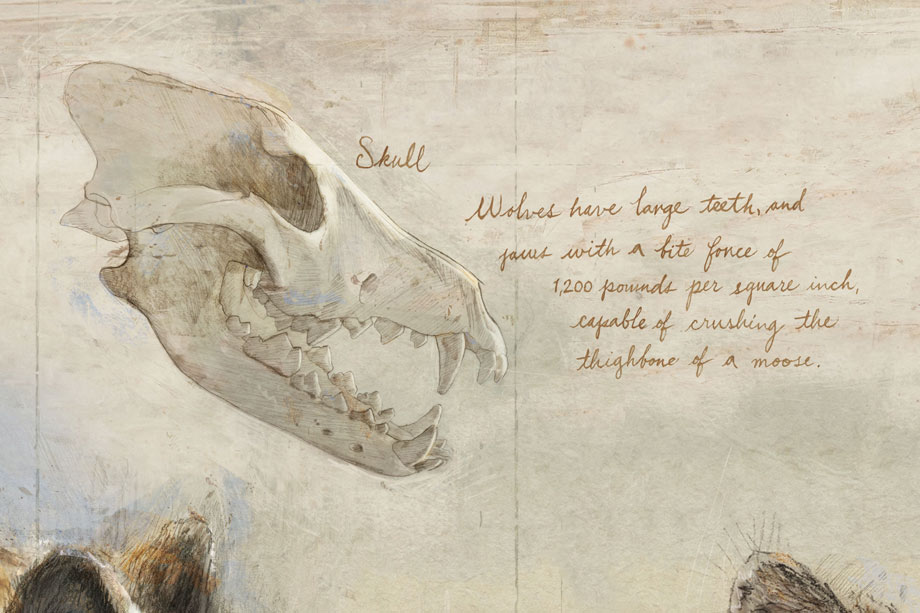 Skull
Wolves have large teeth, and
jaws with a bite force of
1,200 pounds per square inch,
capable of crushing the
thighbone of a moose.